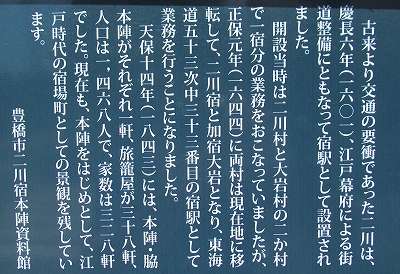 古来より交通の要衝であった二川は、
慶長六年(一六〇一)、江戸幕府による街
道整備にともなって宿駅として設置され
ました。
開設当時は二川村と大岩村の二か村
で一宿分の業務をおこなっていましたが、
正保元年(一六四四)に両村は現在地に移
転して、二川宿と加宿大岩となり、東海
道五十三次中三十三番目の宿駅として
業務を行うことになりました。
天保十四年(一八四三)には、本陣・脇
本陣がそれぞれ一軒、旅籠屋が三十八軒、
人口は一,四六八人で、家数は三二八軒
でした。現在も、本陣をはじめとして、江
戸時代の宿場町としての景観を残してい
ます。
豊橋市二川宿本陣資料館